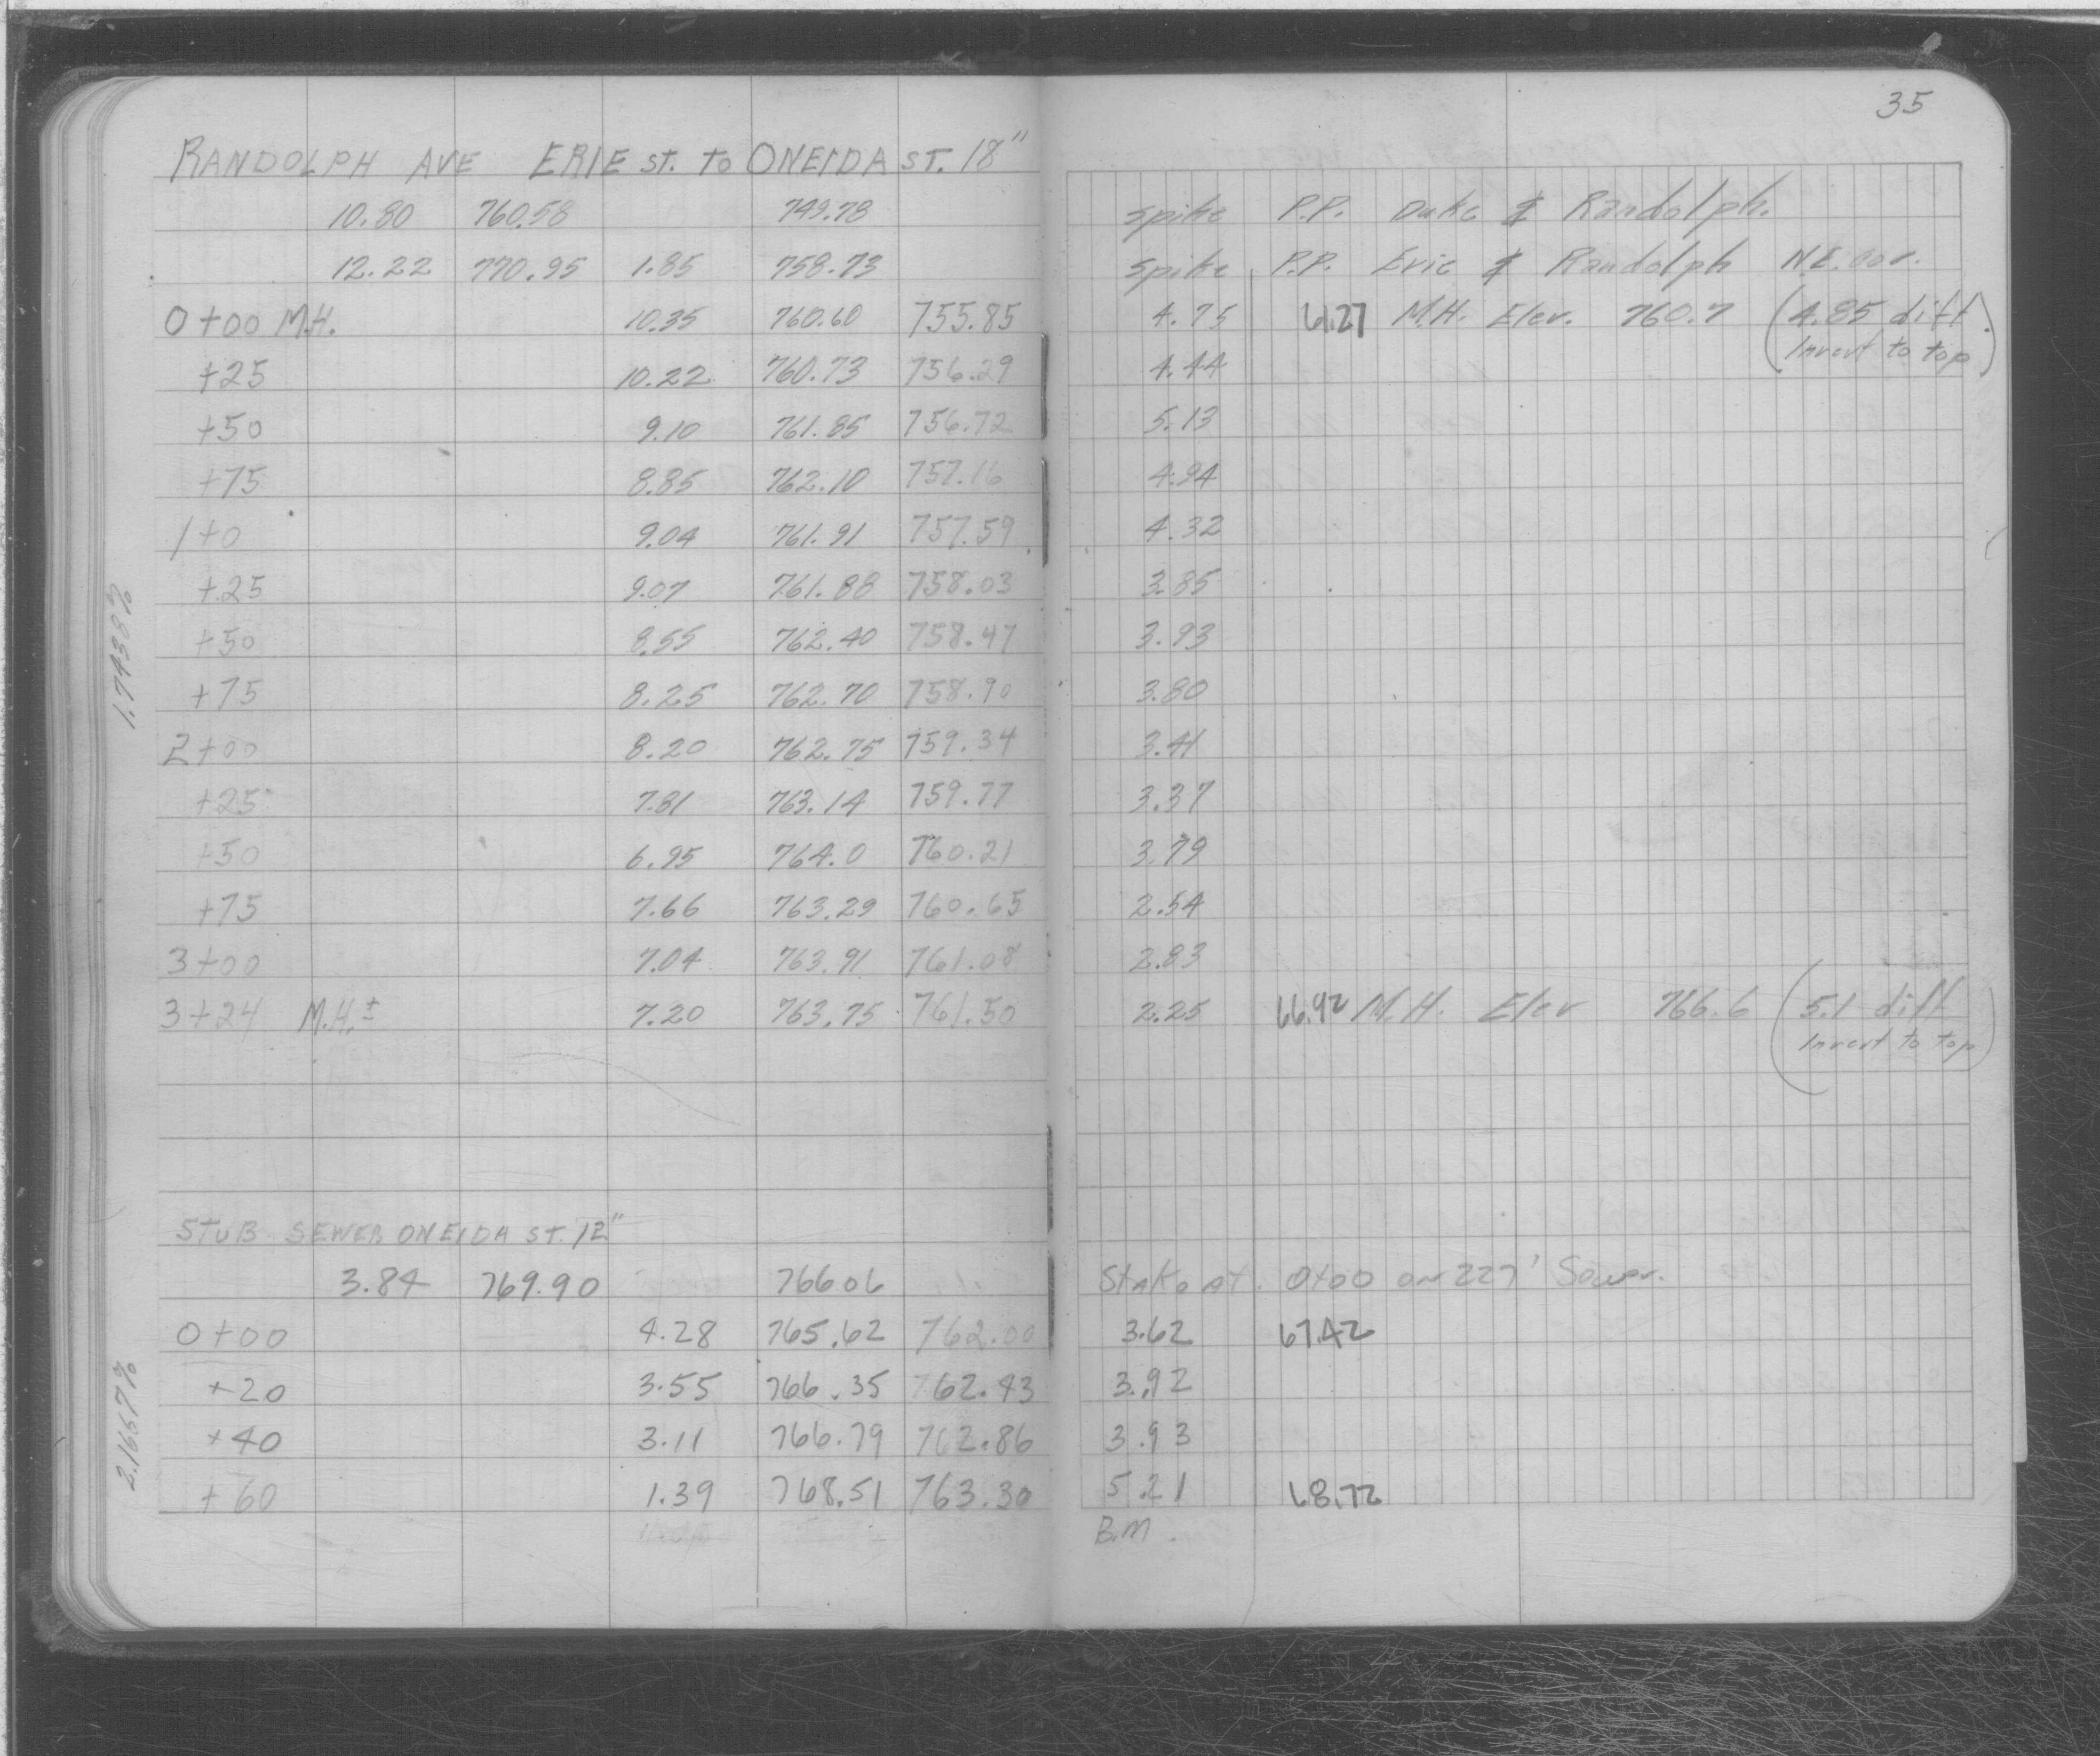 35
RANDOLPH AVE ERIE ST. TO ONEIDA ST. 18"
10.80 760.58 749.78 Spike P.P. Duke & Randolph.
12.22 770.95 1.85 758.73 Spike P.P. Erie & Randolph N.E. Cor.
0+00 M.H. 10.35 760.60 755.85 4.75 61.27 M.H. Elev. 760.7 (4.85 diff.
Invert to top)
+25 10.22 760.73 756.29 4.44
+50 9.10 761.85 756.72 5.13
+75 8.85 762.10 757.16 4.94
1+0 9.04 761.91 757.59 4.32
+25 9.07 761.88 758.03 3.85
+50 8.55 762.40 758.47 3.93
+75 8.25 762.70 758.90 3.80
2+00 8.20 762.75 759.34 3.41
+25 7.81 763.14 759.77 3.37
+50 6.95 764.0 760.21 3.79
+75 7.66 763.29 760.65 2.54
3+00 7.04 763.91 761.08 2.83
3+24 M.H.± 7.20 763.75 761.50 2.25 66.92 M.H. Elev 766.6 (5.1 diff
Invert to top)
1.7438%
STUB SEWER ONEIDA ST. 12"
3.84 769.90 766.06 Stake at 0+00 on 227' Sewer.
0+00 4.28 765.62 762.00 3.62 67.42
+20 3.55 766.35 762.43 3.92
+40 3.11 766.79 762.86 3.93
+60 1.39 768.51 763.30 5.21 68.72
B.M.
2.1667%